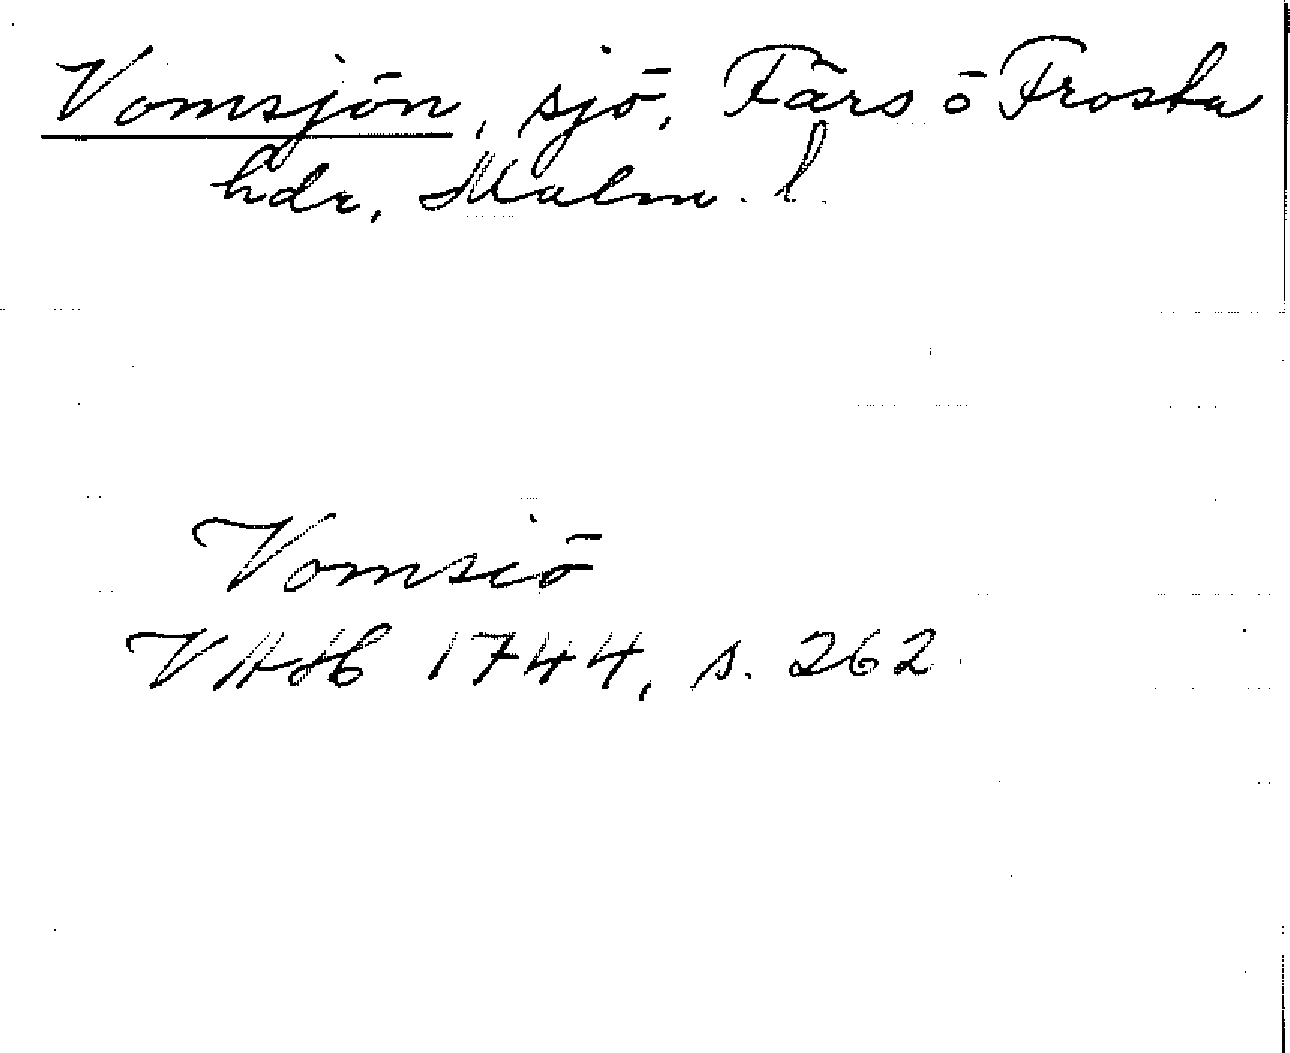 Vomsjön, sjö, Färs ö Frosta
hdr, Malm. l.
Vomsiö
VAH 1744, s. 262